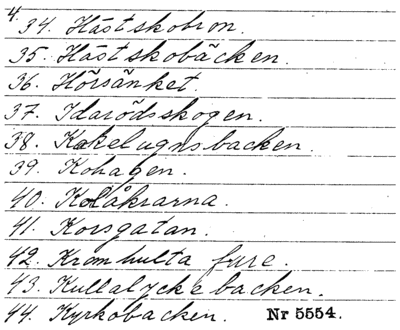 4.
34. Hästskobron.
35. Hästskobäcken.
36. Hörsänket.
37. Idarödsskogen.
38. Kakelugnsbacken.
39. Kohagen.
40. Kolåkrarna.
41. Korsgatan.
42. Kromhulta fure.
43. Kullalyckebacken.
44. Kyrkobacken. Nr 5554.